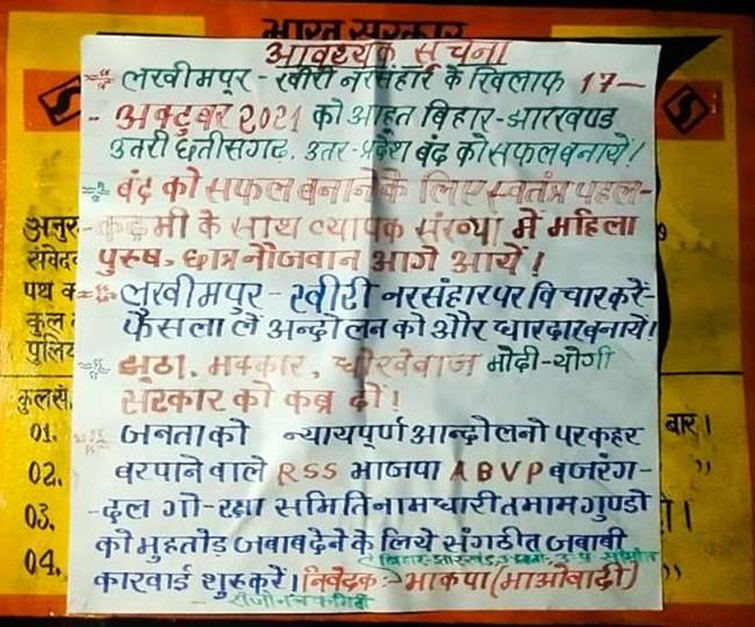 भारत सरकार
आवश्यक सूचना
लखीमपुर - खीरी नरसंहार के खिलाफ 17-
- अक्टुबर 2021 को आहूत बिहार-झारखण्ड
उतरी छतीसगढ़. उतर-प्रदेश बंद को सफल बनाये!
बंद को सफल बनाने के लिए स्वतंत्र पहल-
-कदमी के साथ व्यापक संख्या में महिला
पुरुष, छात्र नौजवान आगे आयें!
लखीमपुर - खीरी नरसंहार पर विचार करें-
फैसला लें अन्दोलन को और धारदार बनायें!
झुठा, मक्कार, धोखेबाज मोदी-योगी
सरकार को कब्र दों!
जनता को न्यायपूर्ण आन्दोलनो पर कहर
बरपाने वाले RSS भाजपा ABVP बजरंग-
-दल गो-रक्षा समिति नामधारी तमाम गुण्डो
को मुहतोड़ जबाब देने के लिये संगठीत जबाबी
कारवाई शुरु करें। निवेदक:- भाकपा (माओवादी)
अनुर
संवेदन
पथ क
कुल
पुलिय
कुल सं.
01.
02.
03.
04.
बार।